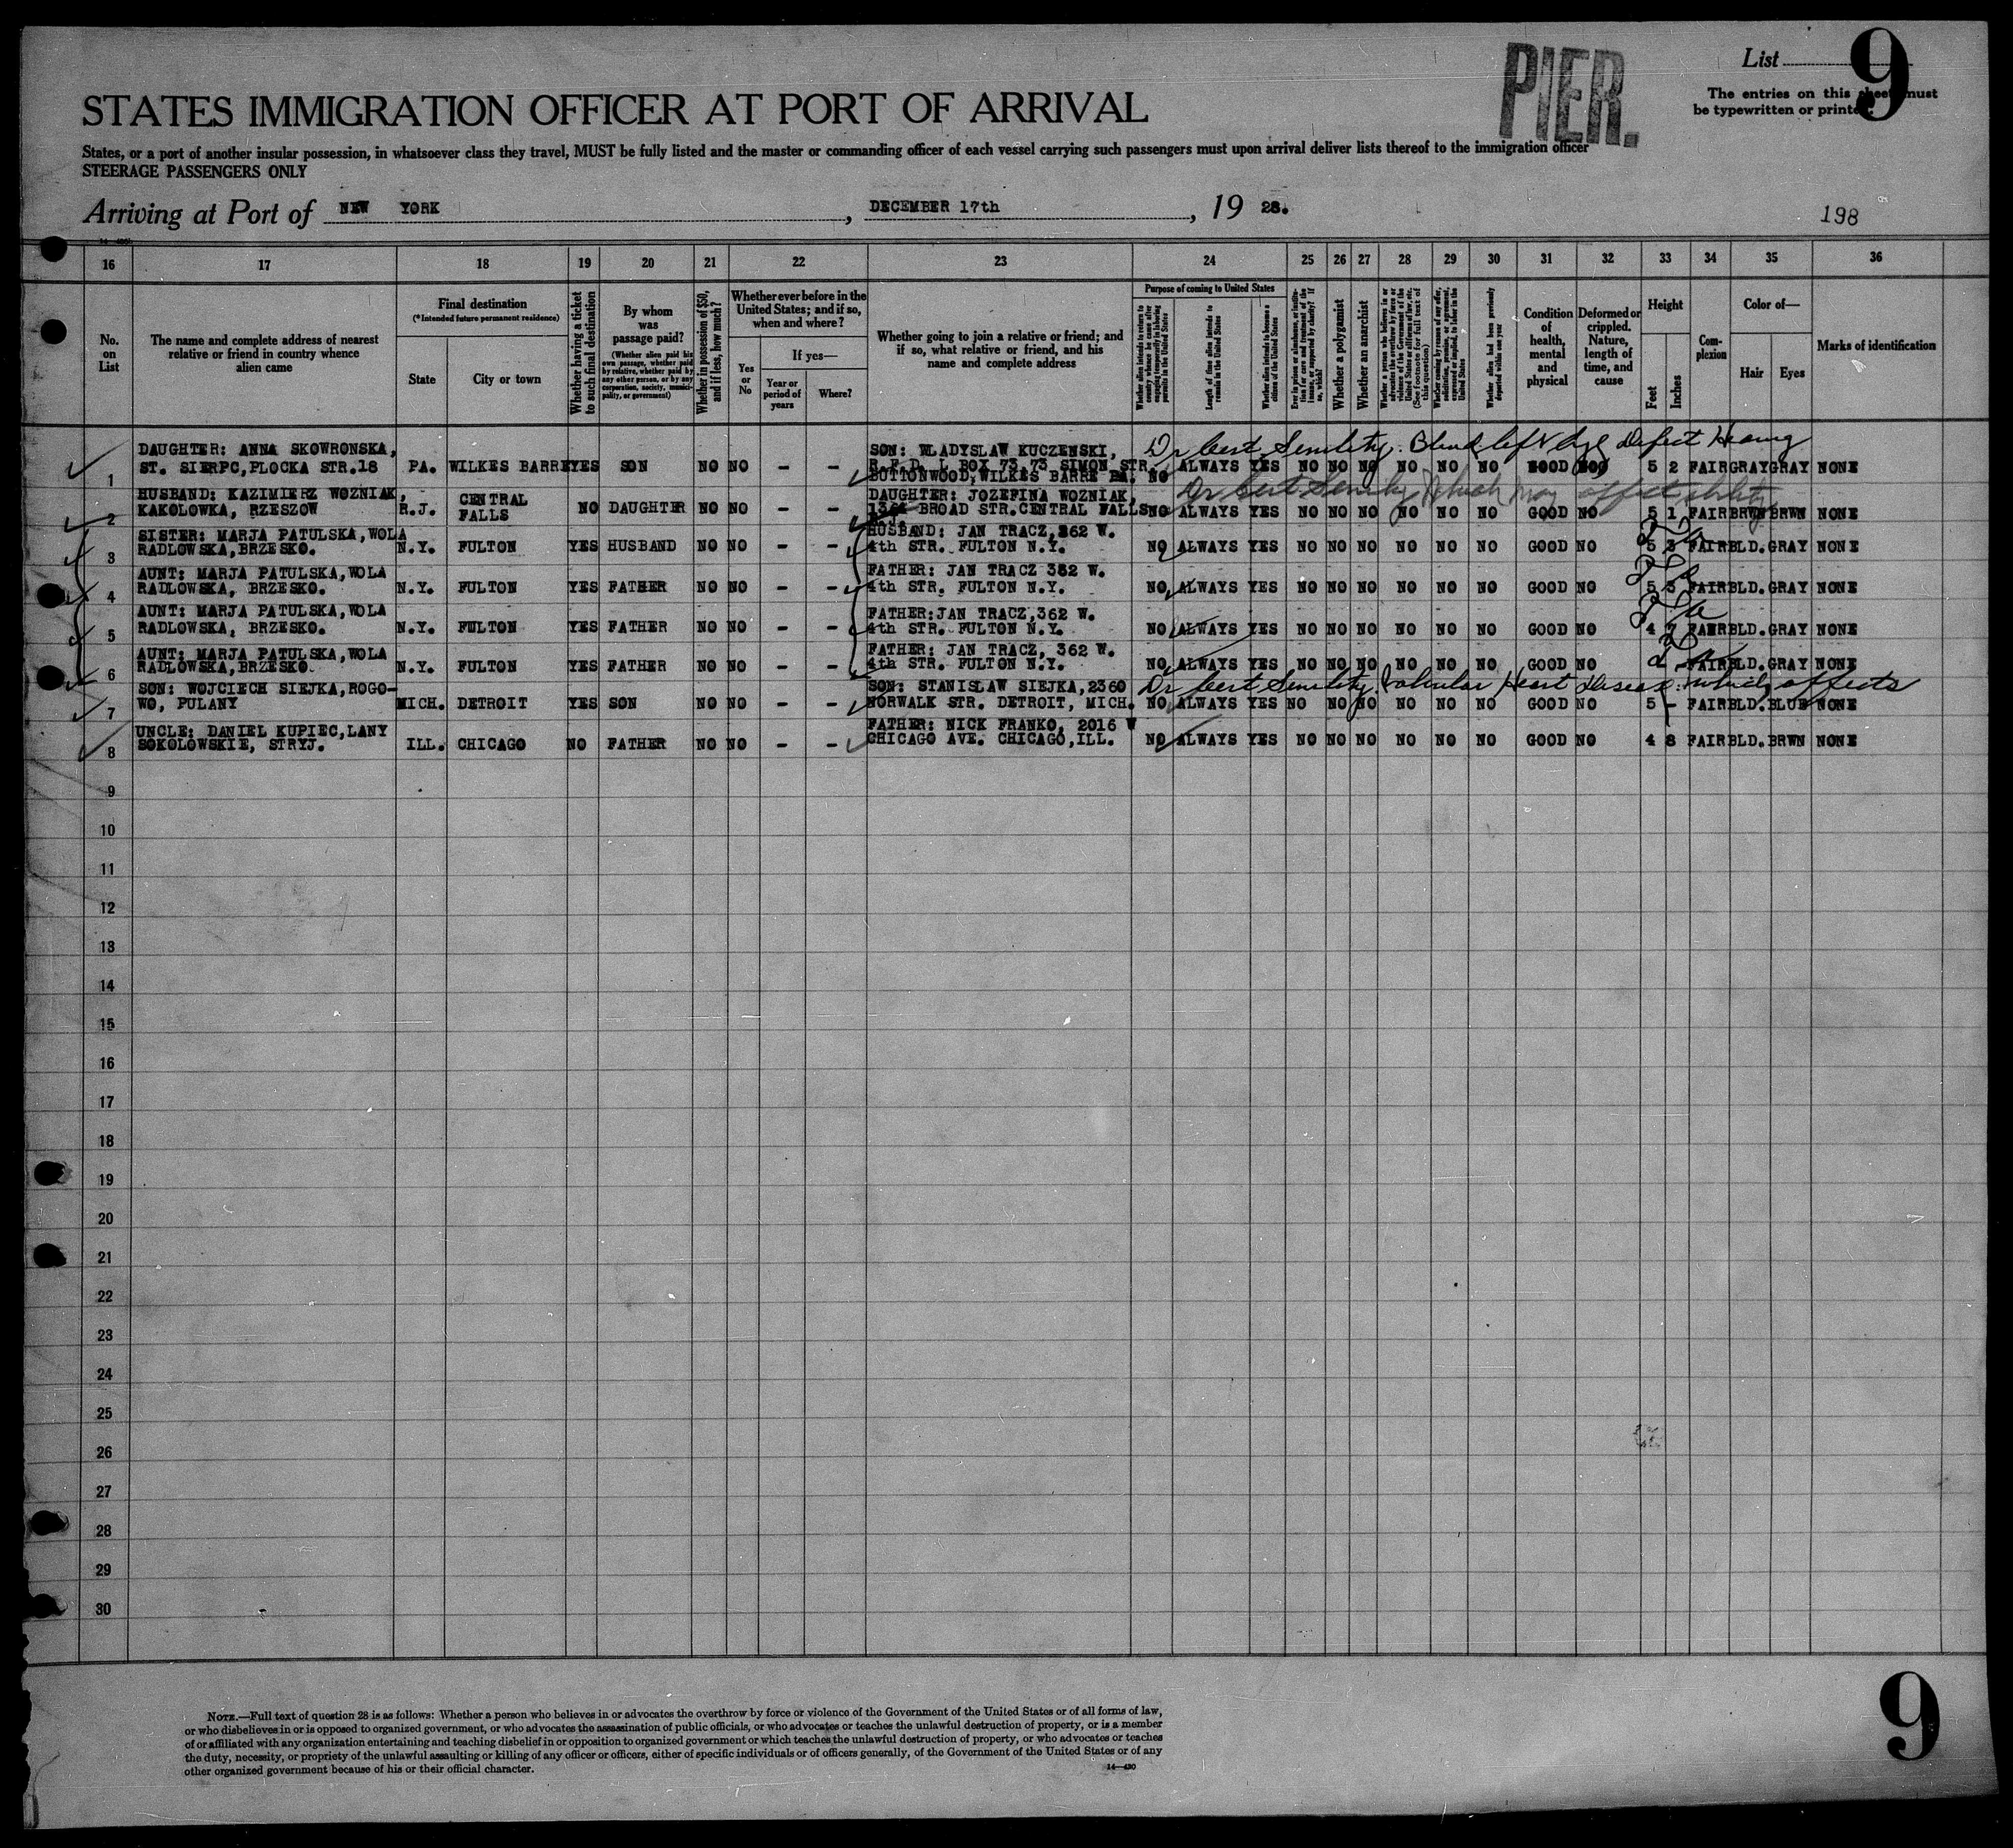 List 9
PIER.
The entries on this sheet must
be typewritten or printed.
STATES IMMIGRATION OFFICER AT PORT OF ARRIVAL
States, or a port of another insular possession, in whatsoever class they travel, MUST be fully listed and the master or commanding officer of each vessel carrying such passengers must upon arrival deliver lists thereof to the immigration officer
STEERAGE PASSENGERS ONLY
Arriving at Port of NEW YORK, DECEMBER 17th, 19 28.
198
16 17 18 19 20 21 22 23 24 25 26 27 28 29 30 31 32 33 34 35 36
No. on List
The name and complete address of nearest relative or friend in country whence alien came
Final destination
(*Intended future permanent residence)
State
City or town
Whether having a ticket to such final destination
By whom was passage paid?
(Whether alien paid his own passage, whether paid by relative, whether paid by any other person, or by any corporation, society, municipality, or government)
Whether in possession of $50, and if less, how much?
Whether ever before in the United States; and if so, when and where?
Yes or No
If yes—
Year or period of years
Where?
Whether going to join a relative or friend; and if so, what relative or friend, and his name and complete address
Purpose of coming to United States
Whether alien intends to return to country whence he came after engaging temporarily in laboring pursuits in the United States
Length of time alien intends to remain in the United States
Whether alien intends to become a citizen of the United States
Ever in prison or almshouse, or institution for care and treatment of the insane, or supported by charity? If so, which?
Whether a polygamist
Whether an anarchist
Whether a person who believes in or advocates the overthrow by force or violence of the Government of the United States or all forms of law, etc. (See footnote for full text of this question)
Whether coming by reason of any offer, solicitation, promise, or agreement, expressed or implied, to labor in the United States
Whether alien had been previously deported within one year
Condition of health, mental and physical
Deformed or crippled. Nature, length of time, and cause
Height
Feet
Inches
Complexion
Color of—
Hair
Eyes
Marks of identification
Dr Cert Senility. Blind left Eye Defect Hearing
1 DAUGHTER: ANNA SKOWRONSKA, ST. SIERPC, PLOCKA STR.18 PA. WILKES BARRE YES SON NO NO - - SON: WLADYSLAW KUCZENSKI, R.F.D. 1 BOX 73, 73 SIMON STR. BUTTONWOOD, WILKES BARRE PA. NO ALWAYS YES NO NO NO NO NO NO GOOD NO 5 2 FAIR GRAY GRAY NONE
Dr Cert Senility which may affect ability
2 HUSBAND: KAZIMIERZ WOZNIAK, KAKOLOWKA, RZESZOW R.J. CENTRAL FALLS NO DAUGHTER NO NO - - DAUGHTER: JOZEFINA WOZNIAK, BROAD STR. CENTRAL FALLS R.J. NO ALWAYS YES NO NO NO NO NO NO GOOD NO 5 1 FAIR BRWN BRWN NONE
3 SISTER: MARJA PATULSKA, WOLA RADLOWSKA, BRZESKO. N.Y. FULTON YES HUSBAND NO NO - - HUSBAND: JAN TRACZ, 362 W. 4th STR. FULTON N.Y. NO ALWAYS YES NO NO NO NO NO NO GOOD NO 5 3 FAIR BLD. GRAY NONE
4 AUNT: MARJA PATULSKA, WOLA RADLOWSKA, BRZESKO. N.Y. FULTON YES FATHER NO NO - - FATHER: JAN TRACZ 362 W. 4th STR. FULTON N.Y. NO ALWAYS YES NO NO NO NO NO NO GOOD NO 5 3 FAIR BLD. GRAY NONE
5 AUNT: MARJA PATULSKA, WOLA RADLOWSKA, BRZESKO. N.Y. FULTON YES FATHER NO NO - - FATHER: JAN TRACZ, 362 W. 4th STR. FULTON N.Y. NO ALWAYS YES NO NO NO NO NO NO GOOD NO 4 7 FAIR BLD. GRAY NONE
6 AUNT: MARJA PATULSKA, WOLA RADLOWSKA, BRZESKO. N.Y. FULTON YES FATHER NO NO - - FATHER: JAN TRACZ, 362 W. 4th STR. FULTON N.Y. NO ALWAYS YES NO NO NO NO NO NO GOOD NO FAIR BLD. GRAY NONE
Dr Cert Senility. Valvular Heart Disease which affects
7 SON: WOJCIECH SIEJKA, ROGOWO, PULANY MICH. DETROIT YES SON NO NO - - SON: STANISLAW SIEJKA, 2360 NORWALK STR. DETROIT, MICH. NO ALWAYS YES NO NO NO NO NO NO GOOD NO 5 - FAIR BLD. BLUE NONE
8 UNCLE: DANIEL KUPIEC, LANY SOKOLOWSKIE, STRYJ. ILL. CHICAGO NO FATHER NO NO - - FATHER: NICK FRANKO, 2016 W CHICAGO AVE. CHICAGO, ILL. NO ALWAYS YES NO NO NO NO NO NO GOOD NO 4 8 FAIR BLD. BRWN NONE
9
10
11
12
13
14
15
16
17
18
19
20
21
22
23
24
25
26
27
28
29
30
NOTE.—Full text of question 28 is as follows: Whether a person who believes in or advocates the overthrow by force or violence of the Government of the United States or of all forms of law,
or who disbelieves in or is opposed to organized government, or who advocates the assassination of public officials, or who advocates or teaches the unlawful destruction of property, or is a member
of or affiliated with any organization entertaining and teaching disbelief in or opposition to organized government or which teaches the unlawful destruction of property, or who advocates or teaches
the duty, necessity, or propriety of the unlawful assaulting or killing of any officer or officers, either of specific individuals or of officers generally, of the Government of the United States or of any
other organized government because of his or their official character.
14—430
9